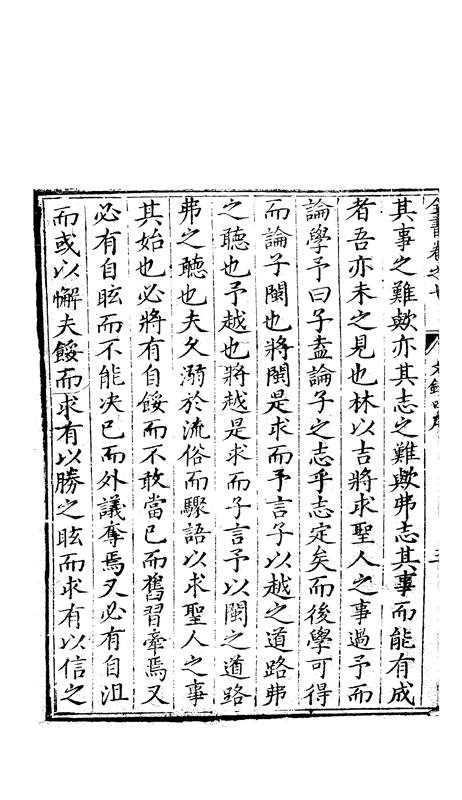 全書卷之七　文錄四序
其事之難歟亦其志之難歟弗志其事而能有成
者吾亦未之見也林以吉將求聖人之事過予而
論學予曰子盍論子之志乎志定矣而後學可得
而論子閩也將閩是求而予言子以越之道路弗
之聽也予越也將越是求而子言予以閩之道路
弗之聽也夫久溺於流俗而驟語以求聖人之事
其始也必將有自餒而不敢當已而舊習牽焉又
必有自眩而不能决已而外議奪焉又必有自沮
而或以懈夫餒而求有以勝之眩而求有以信之